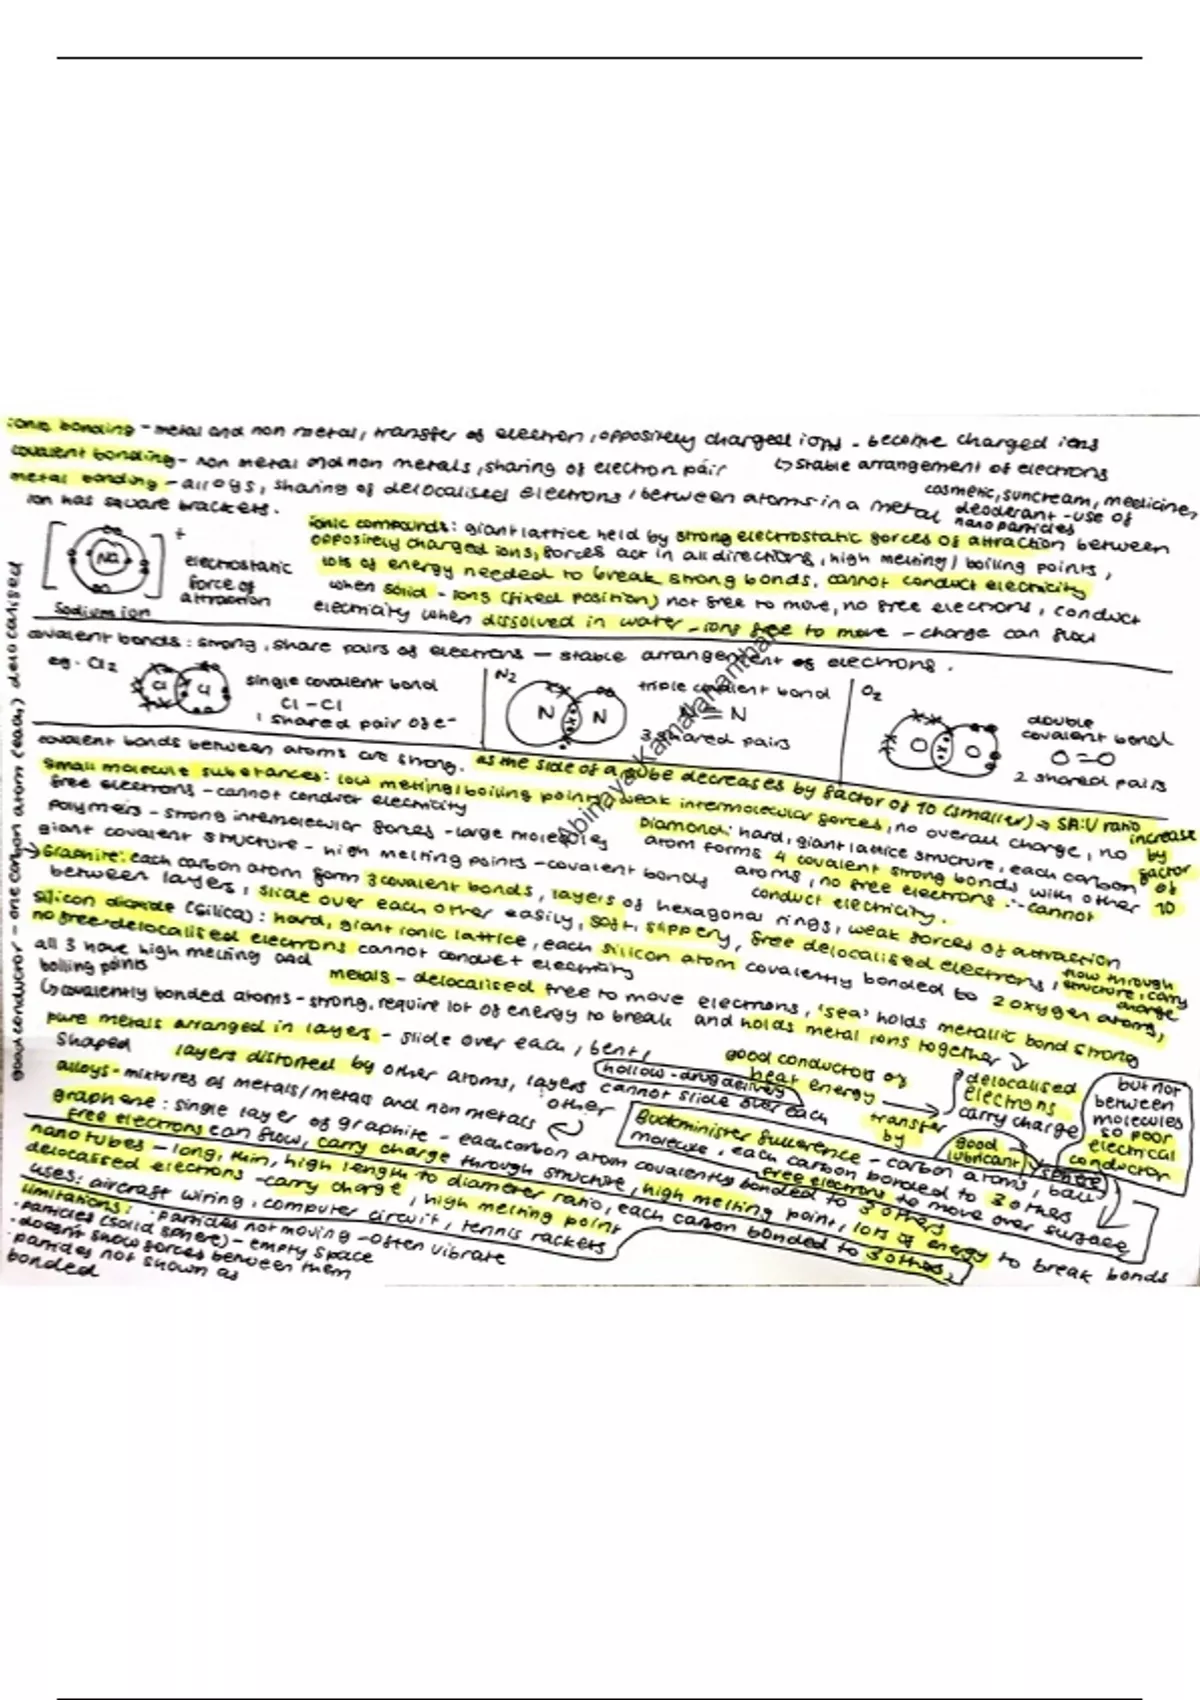 ionic bonding - metal and non metal, transfer of electron, oppositely charged ions - become charged ions
covalent bonding - non metal and non metals, sharing of electron pair ↳ stable arrangement of electrons
metal bonding - alloys, sharing of delocalised electrons, between atoms in a metal
cosmetic, suncream, medicine,
deodorant - use of
nanoparticles
ion has square brackets.
[Na]+
electrostatic
force of
attraction
Sodium ion
ionic compounds: giant lattice held by strong electrostatic forces of attraction between
oppositely charged ions, forces act in all directions, high melting/boiling points,
lots of energy needed to break strong bonds, cannot conduct electricity
when solid - ions (fixed position) not free to move, no free electrons, conduct
electricity when dissolved in water - ions free to move - charge can flow
covalent bonds: strong, share pairs of electrons - stable arrangement of electrons.
eg. Cl2
Cl Cl
single covalent bond
Cl-Cl
1 shared pair of e-
N2
N N
triple covalent bond
N≡N
3 shared pairs
O2
O O
double
covalent bond
O=O
2 shared pairs
covalent bonds between atoms are strong.
as the side of a cube decreases by factor of 10 (smaller) → SA:V ratio
increase
by
factor
of
10
small molecule substances: low melting/boiling points, weak intermolecular forces, no overall charge, no
free electrons - cannot conduct electricity
Polymers - strong intermolecular forces - large molecules
giant covalent structure - high melting points - covalent bonds
Diamond: hard, giant lattice structure, each carbon
atom forms 4 covalent strong bonds with other
atoms, no free electrons ∴ cannot
conduct electricity.
→ Graphite: each carbon atom form 3 covalent bonds, layers of hexagonal rings, weak forces of attraction
between layers, slide over each other easily, soft, slippery, free delocalised electrons, flow through
structure, carry
charge
silicon dioxide (silica): hard, giant ionic lattice, each silicon atom covalently bonded to 2 oxygen atoms,
no free delocalised electrons cannot conduct electricity
all 3 have high melting and
boiling points
↳ covalently bonded atoms - strong, require lot of energy to break
metals - delocalised free to move electrons, 'sea' holds metallic bond strong
and holds metal ions together
pure metals arranged in layers - slide over each, bent,
shaped
good conductors of
heat energy
transfer
by
delocalised
electrons
carry charge
but not
between
molecules
so poor
electrical
conductor
layers distorted by other atoms, layers cannot slide over each
other
hollow - drug delivery
alloys - mixtures of metals/metals and non metals
graphene: single layer of graphite - each carbon atom covalently bonded to 3 others
free electrons can flow, carry charge through structure, high melting point, lots of energy to break bonds
good
lubricant
Buckminster fullerence - carbon atoms, ball
molecule, each carbon bonded to 3 others
free electrons to move over surface
nano tubes - long, thin, high length to diameter ratio, each carbon bonded to 3 others,
delocalised electrons - carry charge, high melting point
uses: aircraft wiring, computer circuit, tennis rackets
limitations: · particles not moving - often vibrate
· particles (solid sphere) - empty space
· doesn't show forces between them
· particles not shown as
bonded
good conductor - one carbon atom (each) delocalised